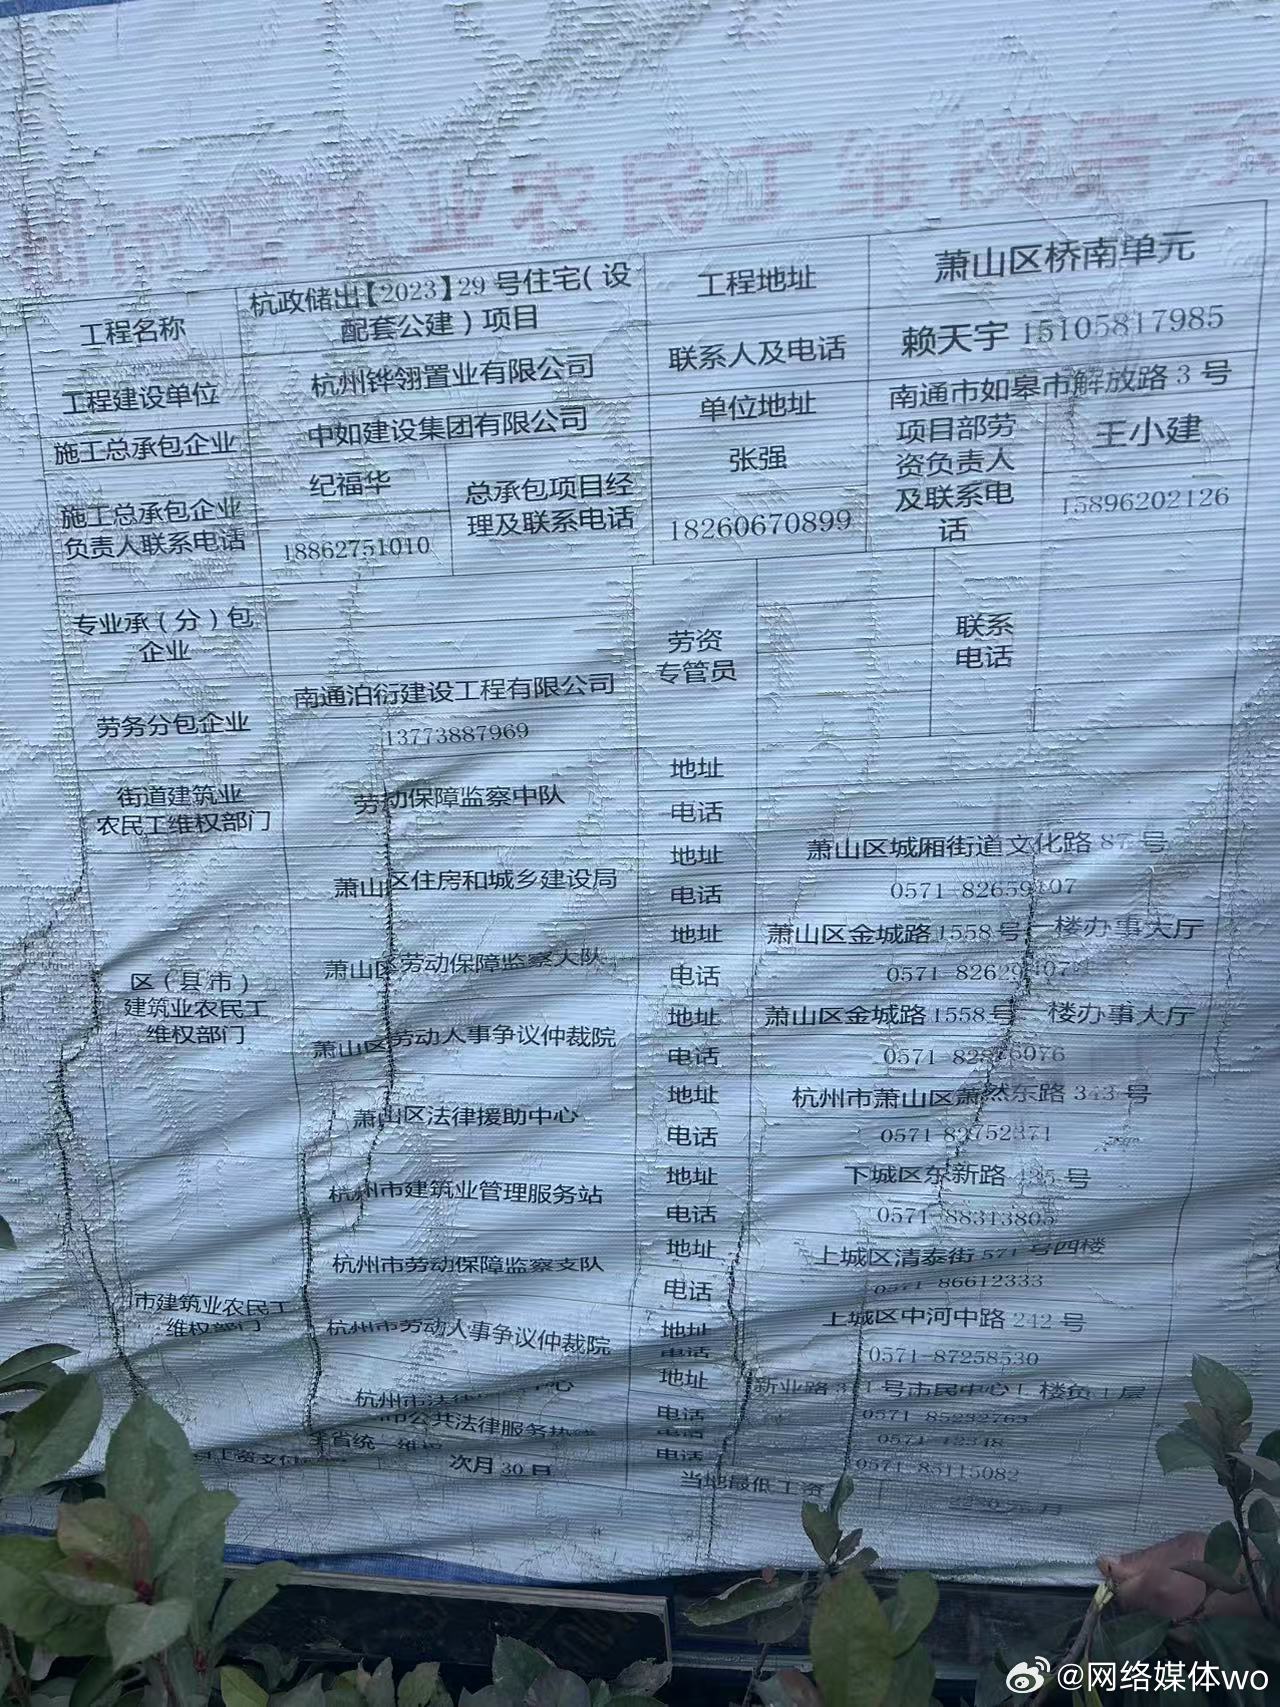 州市建筑业农民工维权告示
工程名称
杭政储出【2023】29号住宅（设
配套公建）项目
工程地址
萧山区桥南单元
工程建设单位
杭州铧翎置业有限公司
联系人及电话
赖天宇 15105817985
施工总承包企业
中如建设集团有限公司
单位地址
南通市如皋市解放路3号
施工总承包企业
负责人联系电话
纪福华
18862751010
总承包项目经
理及联系电话
张强
18260670899
项目部劳
资负责人
及联系电
话
王小建
15896202126
专业承（分）包
企业
劳资
专管员
联系
电话
劳务分包企业
南通泊衍建设工程有限公司
13773887969
街道建筑业
农民工维权部门
劳动保障监察中队
地址
电话
区（县市）
建筑业农民工
维权部门
萧山区住房和城乡建设局
地址
萧山区城厢街道文化路87号
电话
0571-82659107
萧山区劳动保障监察大队
地址
萧山区金城路1558号一楼办事大厅
电话
0571-82629107
萧山区劳动人事争议仲裁院
地址
萧山区金城路1558号一楼办事大厅
电话
0571-82876076
萧山区法律援助中心
地址
杭州市萧山区萧然东路343号
电话
0571-82752371
市建筑业农民工
维权部门
杭州市建筑业管理服务站
地址
下城区东新路435号
电话
0571-88313805
杭州市劳动保障监察支队
地址
上城区清泰街571号四楼
电话
0571-86612333
杭州市劳动人事争议仲裁院
地址
上城区中河中路242号
电话
0571-87258530
杭州市法律中心
地址
新业路号市民中心L楼负1层
电话
0571-85282763
公共法律服务热
电话
0571-12348
省统一维权
电话
0571-85115082
工资支付
次月30日
当地最低工资
元/月
@网络媒体wo